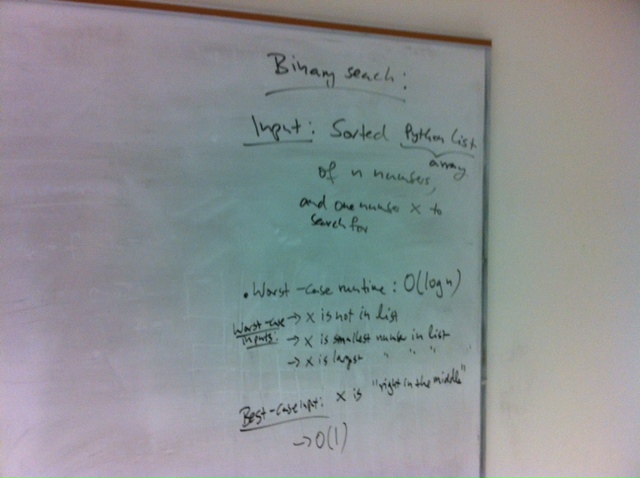 Binary seach:
Input: Sorted Python List
array
of n numers,
and one numer x to
search for
• Worst-case runtime: O(log n)
Worst-case inputs: → x is not in list
→ x is smallest numer in list
→ x is largest " " "
Best-case input: x is "right in the middle"
→ O(1)